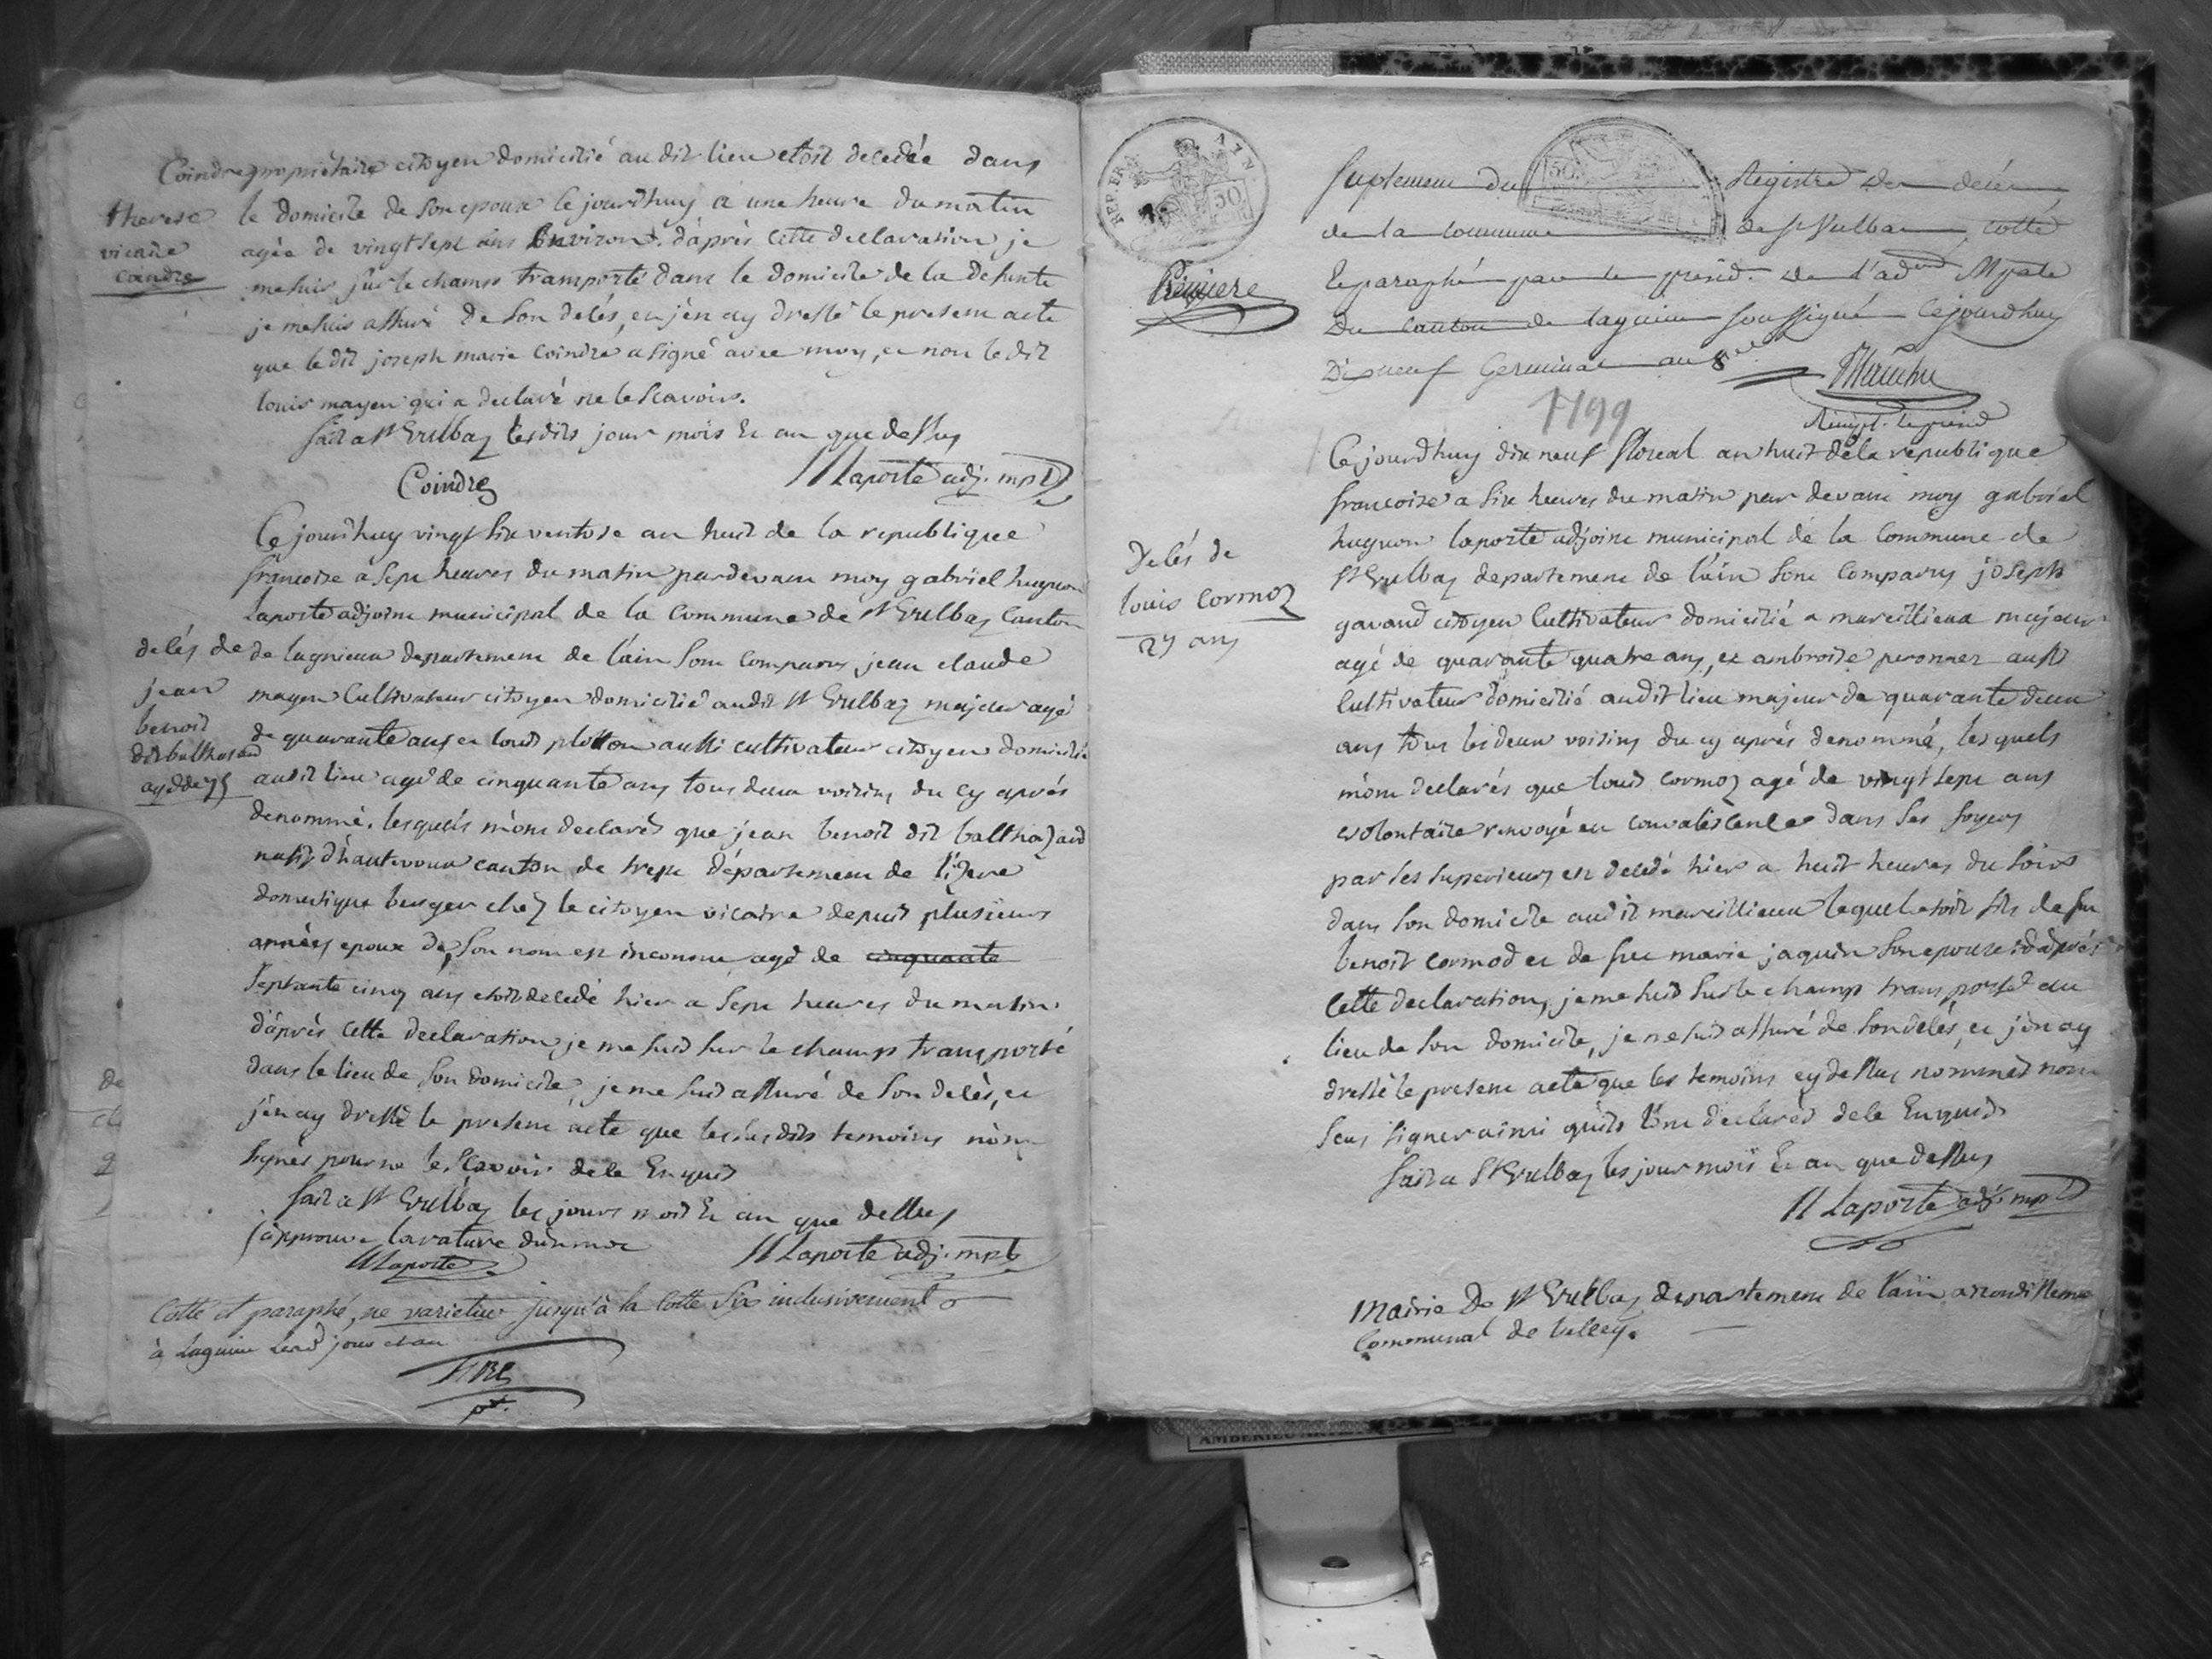 Coindre propriétaire citoyen domicilié au dit lieu etoit decedée dans
therese
vicaire
coindre
le domicile de son epoux cejourdhuy a une heure du matin
agée de vingt sept ans Environ. d'après cette declaration je
me suis sur le champs transporté dans le domicile de la defunte
je me suis assuré de son delés, et j'en ay dressé le present acte
que le dit joseph marie Coindre a signé avec moy, et non le dit
louis mayen qui a declaré ne le scavoir.
fait a St Vulbaz lesdits jour mois Et an que dessus
Coindre
H Laporte adj. mpl
Cejourdhuy vingt six ventose an huit de la republique
francoise a sept heures du matin pardevant moy gabriel hugnon
Laporte adjoint municipal de la Commune de St Vulbaz Canton
delés de
jean
benoit
dit balthasard
agé de 75
de lagnieux departement de l'ain sont comparus jean claude
mayen Cultivateur citoyen domicilié audit St Vulbaz majeur agé
de quarante ans et louis plotton aussi cultivateur citoyen domicilié
audit lieu agé de cinquante ans tous deux voisins du cy après
denommé. lesquels m'ont declarés que jean benoit dit balthazard
natif d'hautevoux canton de trept département de l'izere
domestique berger chez le citoyen vicaire depuis plusieurs
années epoux de, son nom est inconnu agé de cinquante
septante cinq ans etoit decedé hier a sept heures du matin.
d'après cette declaration, je me suis sur le champs transporté
dans le lieu de son domicile, je me suis assuré de son delés, et
j'en ay dressé le present acte que les susdits temoins n'ont
signés pour ne le scavoir de ce Enquis
fait a St Vulbaz les jours mois Et an que dessus
j'approuve la rature d'un mot
H Laporte
H Laporte adj. mpl
Cotté et paraphé, ne varietur jusqu'à la Cotte six inclusivement
à Lagnieu lesd jour et an
REP. FRA
AIN
50
50
Premiere
Suplement du Registre des décés
de la commune de St Vulbas, cotté
Et paraphé par le présid. de l'admon Mpale
Du Canton de Lagnieu soussigné Cejourdhuy
Dixneuf Germinal an 8
1799
Delés de
louis cormoz
27 ans
Cejourdhuy dix neuf floreal an huit de la republique
francoise a six heures du matin par devant moy gabriel
hugnon laporte adjoint municipal de la Commune de
St Vulbaz departement de l'ain sont Comparus joseph
gavand citoyen Cultivateur domicilié a marcillieux majeur
agé de quarante quatre ans, et ambroise peronnet aussi
Cultivateur domicilié audit lieu majeur de quarante deux
ans tous les deux voisins du cy après denommé, les quels
m'ont declarés que louis cormoz agé de vingt sept ans
volontaire renvoyé en convalescence dans ses foyers
par ses superieurs est decedé hier a huit heures du soir
dans son domicile audit marcillieux lequel etoit fils de feu
benoit cormod et de feu marie jaquin son epouse d'après
cette declaration, je me suis sur le champs transporté au
lieu de son domicile, je me suis assuré de son delés, et j'en ay
dressé le present acte que les temoins cy dessus nommés n'ont
sceus signer ainsi qu'ils l'ont declarés de ce Enquis
fait a St Vulbaz les jour mois Et an que dessus
H Laporte adj. mpl
Mairie de St Vulbaz departement de l'ain arondissement
Communal de belley.